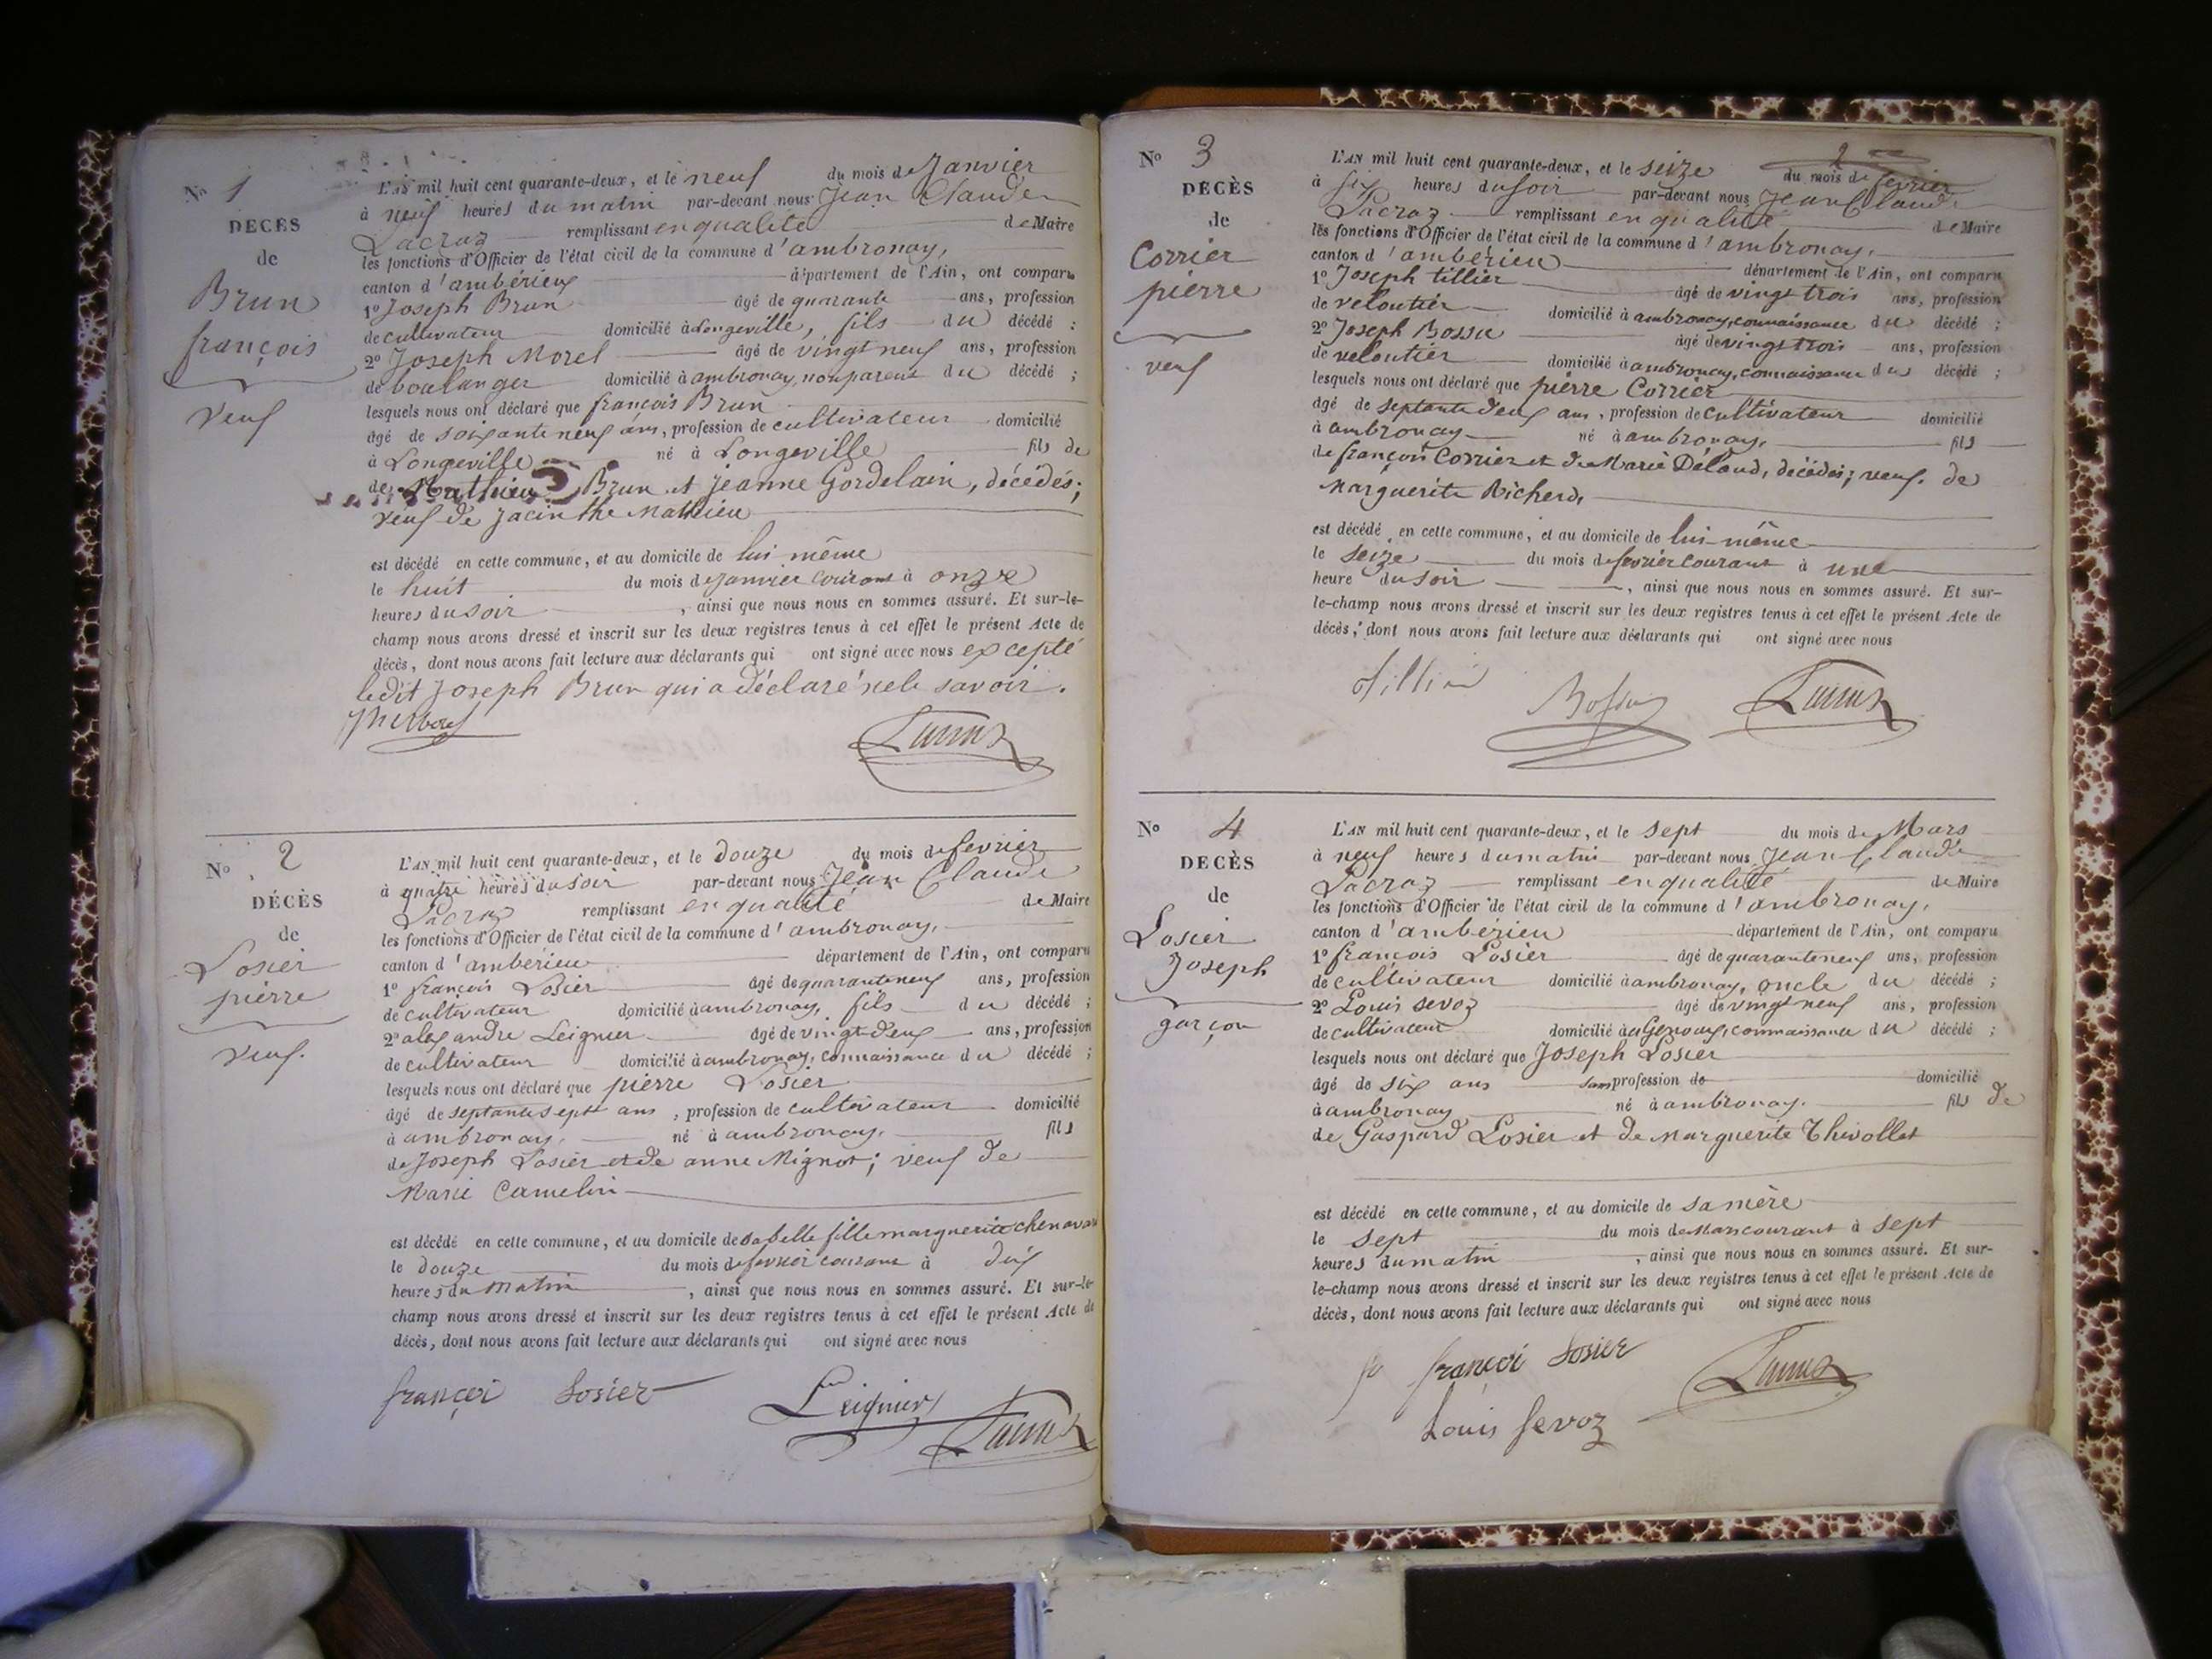 N° 1
DÉCÈS
de
Brun
françois
Veuf
L'AN mil huit cent quarante-deux, et le neuf du mois de Janvier
à neuf heures du matin par-devant nous Jean Claude
Lacroz remplissant en qualité de Maire
les fonctions d'Officier de l'état civil de la commune d'ambronay,
canton d'ambérieu département de l'Ain, ont comparu
1° Joseph Brun âgé de quarante ans, profession
de cultivateur domicilié à Longeville, fils du décédé ;
2° Joseph Morel âgé de vingt neuf ans, profession
de boulanger domicilié à ambronay, non parent du décédé ;
lesquels nous ont déclaré que françois Brun
âgé de soixante neuf ans, profession de cultivateur domicilié
à Longeville né à Longeville fils de
de Mathieu Brun et jeanne Gordelain, décédés;
veuf de Jacinthe Mathieu
est décédé en cette commune, et au domicile de lui même
le huit du mois de Janvier courant à onze
heures du soir , ainsi que nous nous en sommes assuré. Et sur-le-
champ nous avons dressé et inscrit sur les deux registres tenus à cet effet le présent Acte de
décès, dont nous avons fait lecture aux déclarants qui ont signé avec nous excepté
ledit Joseph Brun qui a déclaré ne le savoir.
N° 2
DÉCÈS
de
Losier
pierre
Veuf.
L'AN mil huit cent quarante-deux, et le douze du mois de fevrier
à quatre heures du soir par-devant nous Jean Claude
Lacroz remplissant en qualité de Maire
les fonctions d'Officier de l'état civil de la commune d'ambronay,
canton d'ambérieu département de l'Ain, ont comparu
1° françois Losier âgé de quarante neuf ans, profession
de cultivateur domicilié à ambronay, fils du décédé ;
2° alexandre Leignier âgé de vingt deux ans, profession
de cultivateur domicilié à ambronay, connaissance du décédé ;
lesquels nous ont déclaré que pierre Losier
âgé de septante sept ans , profession de cultivateur domicilié
à ambronay. né à ambronay. fils
de Joseph Losier et de anne Mignot; veuf de
Marie Camelin
est décédé en cette commune, et au domicile de sa belle fille marguerite chenavard
le douze du mois de fevrier courant à dix
heures du matin , ainsi que nous nous en sommes assuré. Et sur-le-
champ nous avons dressé et inscrit sur les deux registres tenus à cet effet le présent Acte de
décès, dont nous avons fait lecture aux déclarants qui ont signé avec nous
françoi Losier Leignier
2
N° 3
DÉCÈS
de
Corrier
pierre
veuf
L'AN mil huit cent quarante-deux, et le seize du mois de fevrier
à six heures du soir par-devant nous Jean Claude
Lacroz remplissant en qualité de Maire
les fonctions d'Officier de l'état civil de la commune d'ambronay,
canton d'ambérieu département de l'Ain, ont comparu
1° Joseph tillier âgé de vingt trois ans, profession
de veloutier domicilié à ambronay, connaissance du décédé ;
2° Joseph Bossu âgé de vingt trois ans, profession
de veloutier domicilié à ambronay, connaissance du décédé ;
lesquels nous ont déclaré que pierre Corrier
âgé de septante deux ans , profession de cultivateur domicilié
à ambronay né à ambronay, fils
de françois Corrier et de Marie Déloud, décédés; veuf de
Marguerite Richerd,
est décédé en cette commune, et au domicile de lui-même
le seize du mois de fevrier courant à une
heure du soir , ainsi que nous nous en sommes assuré. Et sur-
le-champ nous avons dressé et inscrit sur les deux registres tenus à cet effet le présent Acte de
décès, dont nous avons fait lecture aux déclarants qui ont signé avec nous
tillier Bossu
N° 4
DÉCÈS
de
Losier
Joseph
garçon
L'AN mil huit cent quarante-deux, et le sept du mois de Mars
à neuf heures du matin par-devant nous Jean Claude
Lacroz remplissant en qualité de Maire
les fonctions d'Officier de l'état civil de la commune d'ambronay,
canton d'ambérieu département de l'Ain, ont comparu
1° françois Losier âgé de quarante neuf ans, profession
de cultivateur domicilié à ambronay, oncle du décédé ;
2° Louis sevoz âgé de vingt neuf ans, profession
de cultivateur domicilié à connaissance du décédé ;
lesquels nous ont déclaré que Joseph Losier
âgé de six ans sans profession de domicilié
à ambronay né à ambronay. fils de
de Gaspard Losier et de Marguerite Thevollet
est décédé en cette commune, et au domicile de sa mère
le sept du mois de Mars courant à sept
heures du matin , ainsi que nous nous en sommes assuré. Et sur-
le-champ nous avons dressé et inscrit sur les deux registres tenus à cet effet le présent Acte de
décès, dont nous avons fait lecture aux déclarants qui ont signé avec nous
françoi Losier
Louis Sevoz